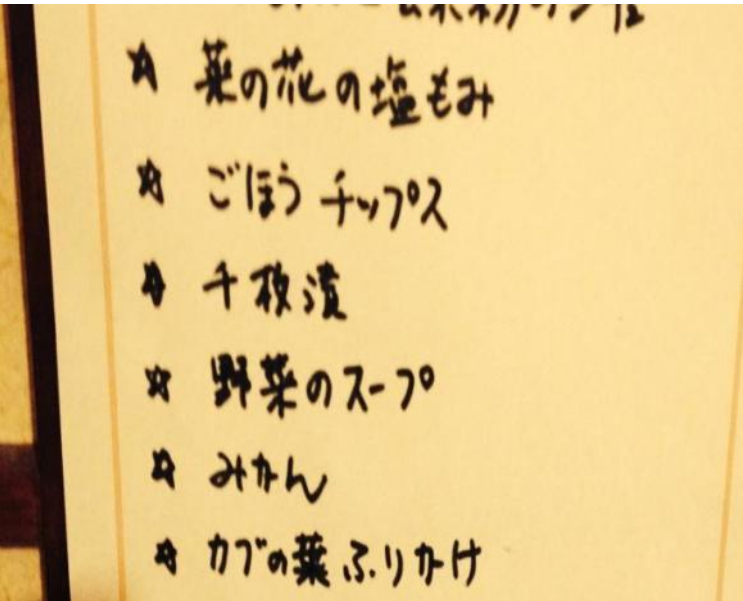 ☆ 菜の花の塩もみ
☆ ごぼうチップス
☆ 千枚漬
☆ 野菜のスープ
☆ みかん
☆ カブの葉ふりかけ